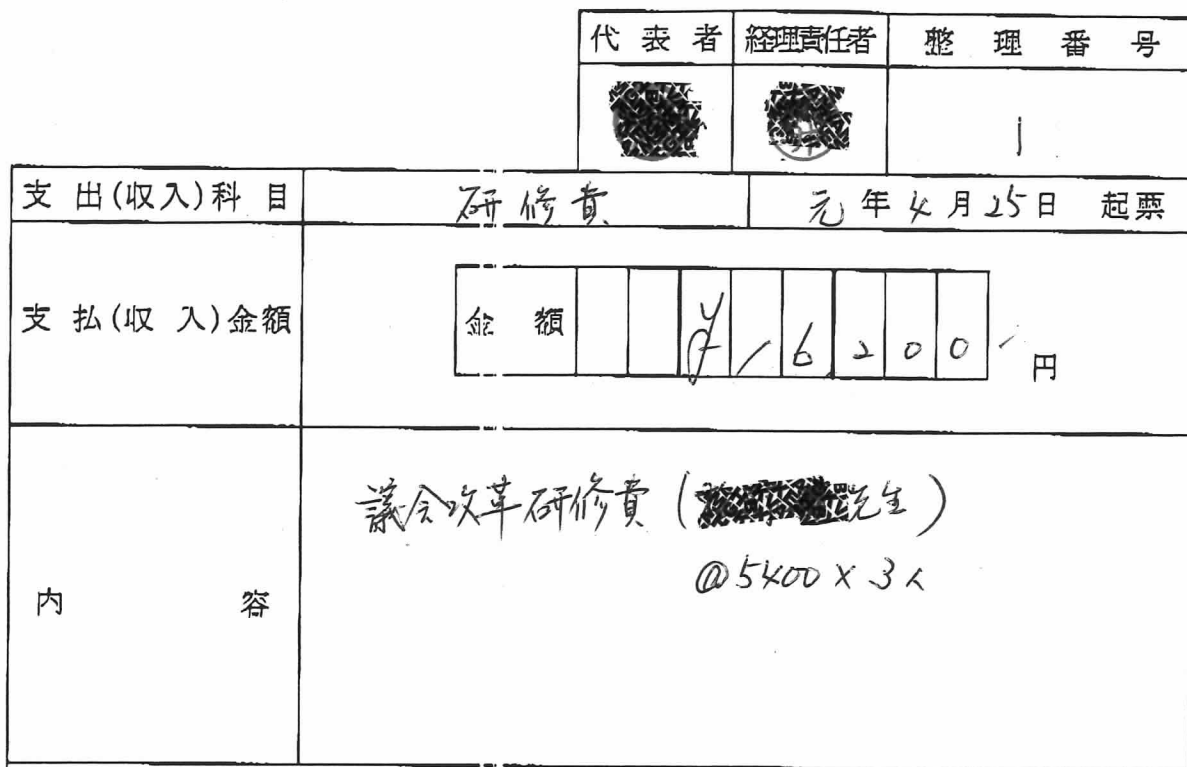 代表者 経理責任者 整理番号
1
支出(収入)科目 研修費 元年4月25日 起票
支払(収入)金額 金額 ¥16,200 円
議会改革研修費(先生)
@5400×3人
内容